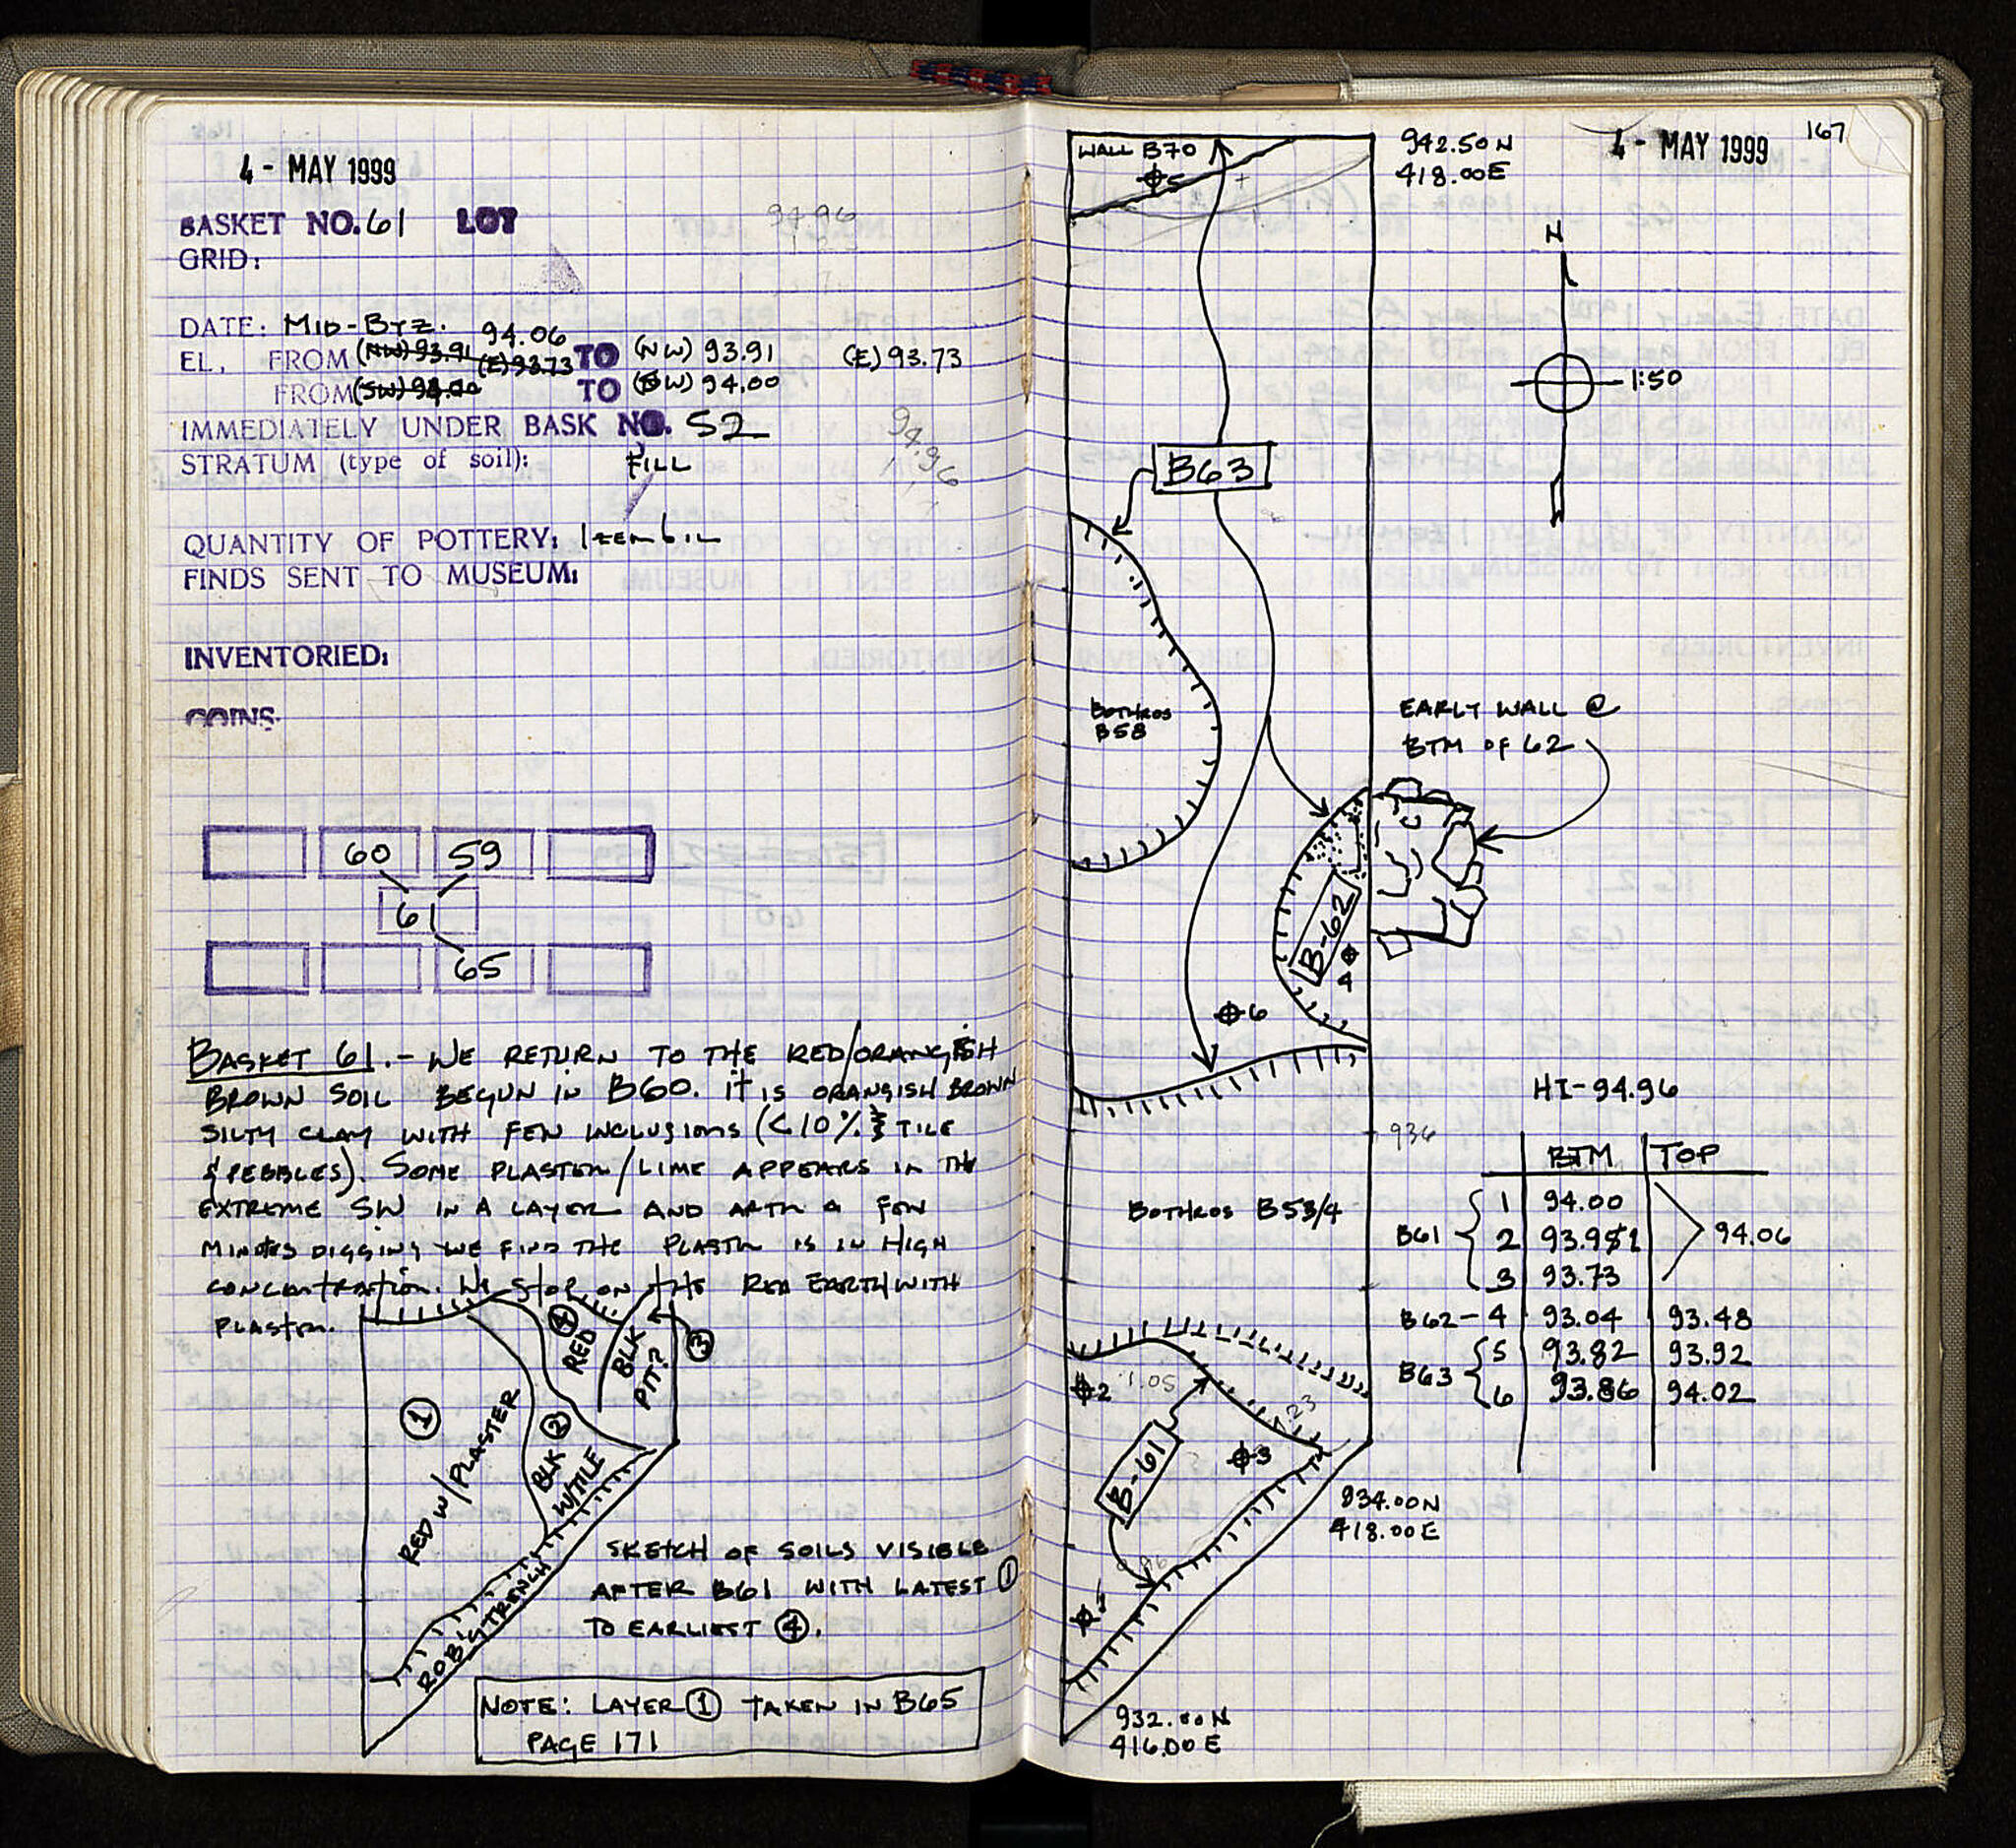 4 - MAY 1999
BASKET NO. 61 LOT
94.96
GRID:
DATE: MID-BYZ. 94.06
EL. FROM (NW) 93.91 (E) 93.73 TO (NW) 93.91 (E) 93.73
FROM (SW) 94.00 TO (SW) 94.00
IMMEDIATELY UNDER BASK NO. 52
94.96
STRATUM (type of soil): FILL
QUANTITY OF POTTERY:
FINDS SENT TO MUSEUM:
INVENTORIED:
COINS
60 59
61
65
BASKET 61. - WE RETURN TO THE RED/ORANGISH
BROWN SOIL BEGUN IN B60. IT IS ORANGISH BROWN
SILTY CLAY WITH FEW INCLUSIONS (<10% TILE
& PEBBLES). SOME PLASTER/LIME APPEARS IN THE
EXTREME SW IN A LAYER AND AFTER A FEW
MINUTES DIGGING WE FIND THE PLASTER IS IN HIGH
CONCENTRATION. WE STOP ON THE RED EARTH WITH
PLASTER.
4
RED
BLK
PIT?
3
1
RED W/PLASTER
2
BLK
W/TILE
ROB'G TRENCH
SKETCH OF SOILS VISIBLE
AFTER B61 WITH LATEST 1
TO EARLIEST 4.
NOTE: LAYER 1 TAKEN IN B65
PAGE 171
167
4 - MAY 1999
WALL B70
5
942.50 N
418.00 E
N
1:50
B63
BOTHROS
B58
EARLY WALL @
BTM OF 62
B-62
4
6
HI-94.96
936
BTM TOP
B61 1 94.00
2 93.91 94.06
3 93.73
B62 - 4 93.04 93.48
B63 5 93.82 93.92
6 93.86 94.02
BOTHROS B53/4
2
1.05
1.23
B-61
3
934.00 N
418.00 E
.96
1
932.00 N
416.00 E